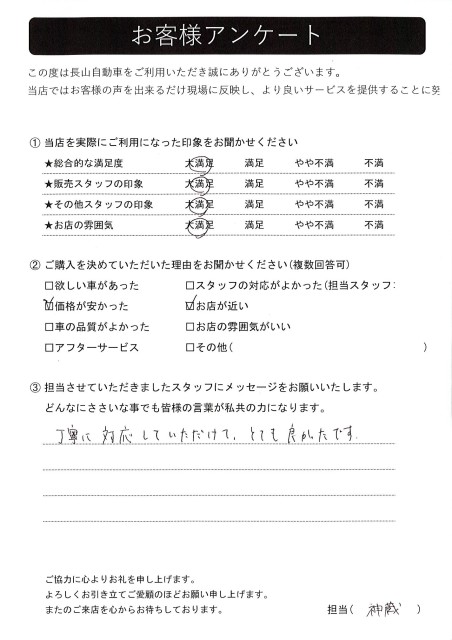 お客様アンケート
この度は長山自動車をご利用いただき誠にありがとうございます。
当店ではお客様の声を出来るだけ現場に反映し、より良いサービスを提供することに努
① 当店を実際にご利用になった印象をお聞かせください
★総合的な満足度 大満足 満足 やや不満 不満
★販売スタッフの印象 大満足 満足 やや不満 不満
★その他スタッフの印象 大満足 満足 やや不満 不満
★お店の雰囲気 大満足 満足 やや不満 不満
② ご購入を決めていただいた理由をお聞かせください(複数回答可)
□欲しい車があった □スタッフの対応がよかった(担当スタッフ:
☑価格が安かった ☑お店が近い
□車の品質がよかった □お店の雰囲気がいい
□アフターサービス □その他( )
③ 担当させていただきましたスタッフにメッセージをお願いいたします。
どんなにささいな事でも皆様の言葉が私共の力になります。
丁寧に対応していただけて、とても良かったです。
ご協力に心よりお礼を申し上げます。
よろしくお引き立てご愛顧のほどお願い申し上げます。
またのご来店を心からお待ちしております。 担当( 神蔵 )